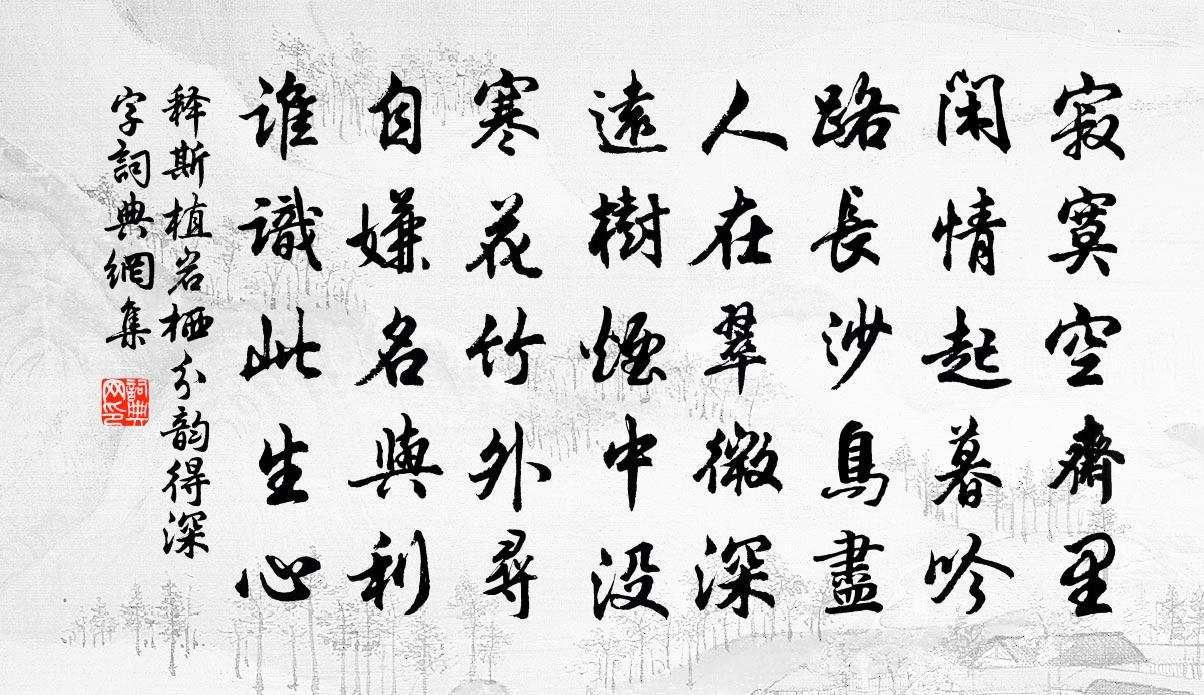 寂寞空齋里
閑情起暮吟
路長沙鳥盡
人在翠微深
遠樹煙中没
寒花竹外尋
自嫌名與利
誰識此生心
释斯植岩栖分韵得深
字詞典網集
詞典
网印